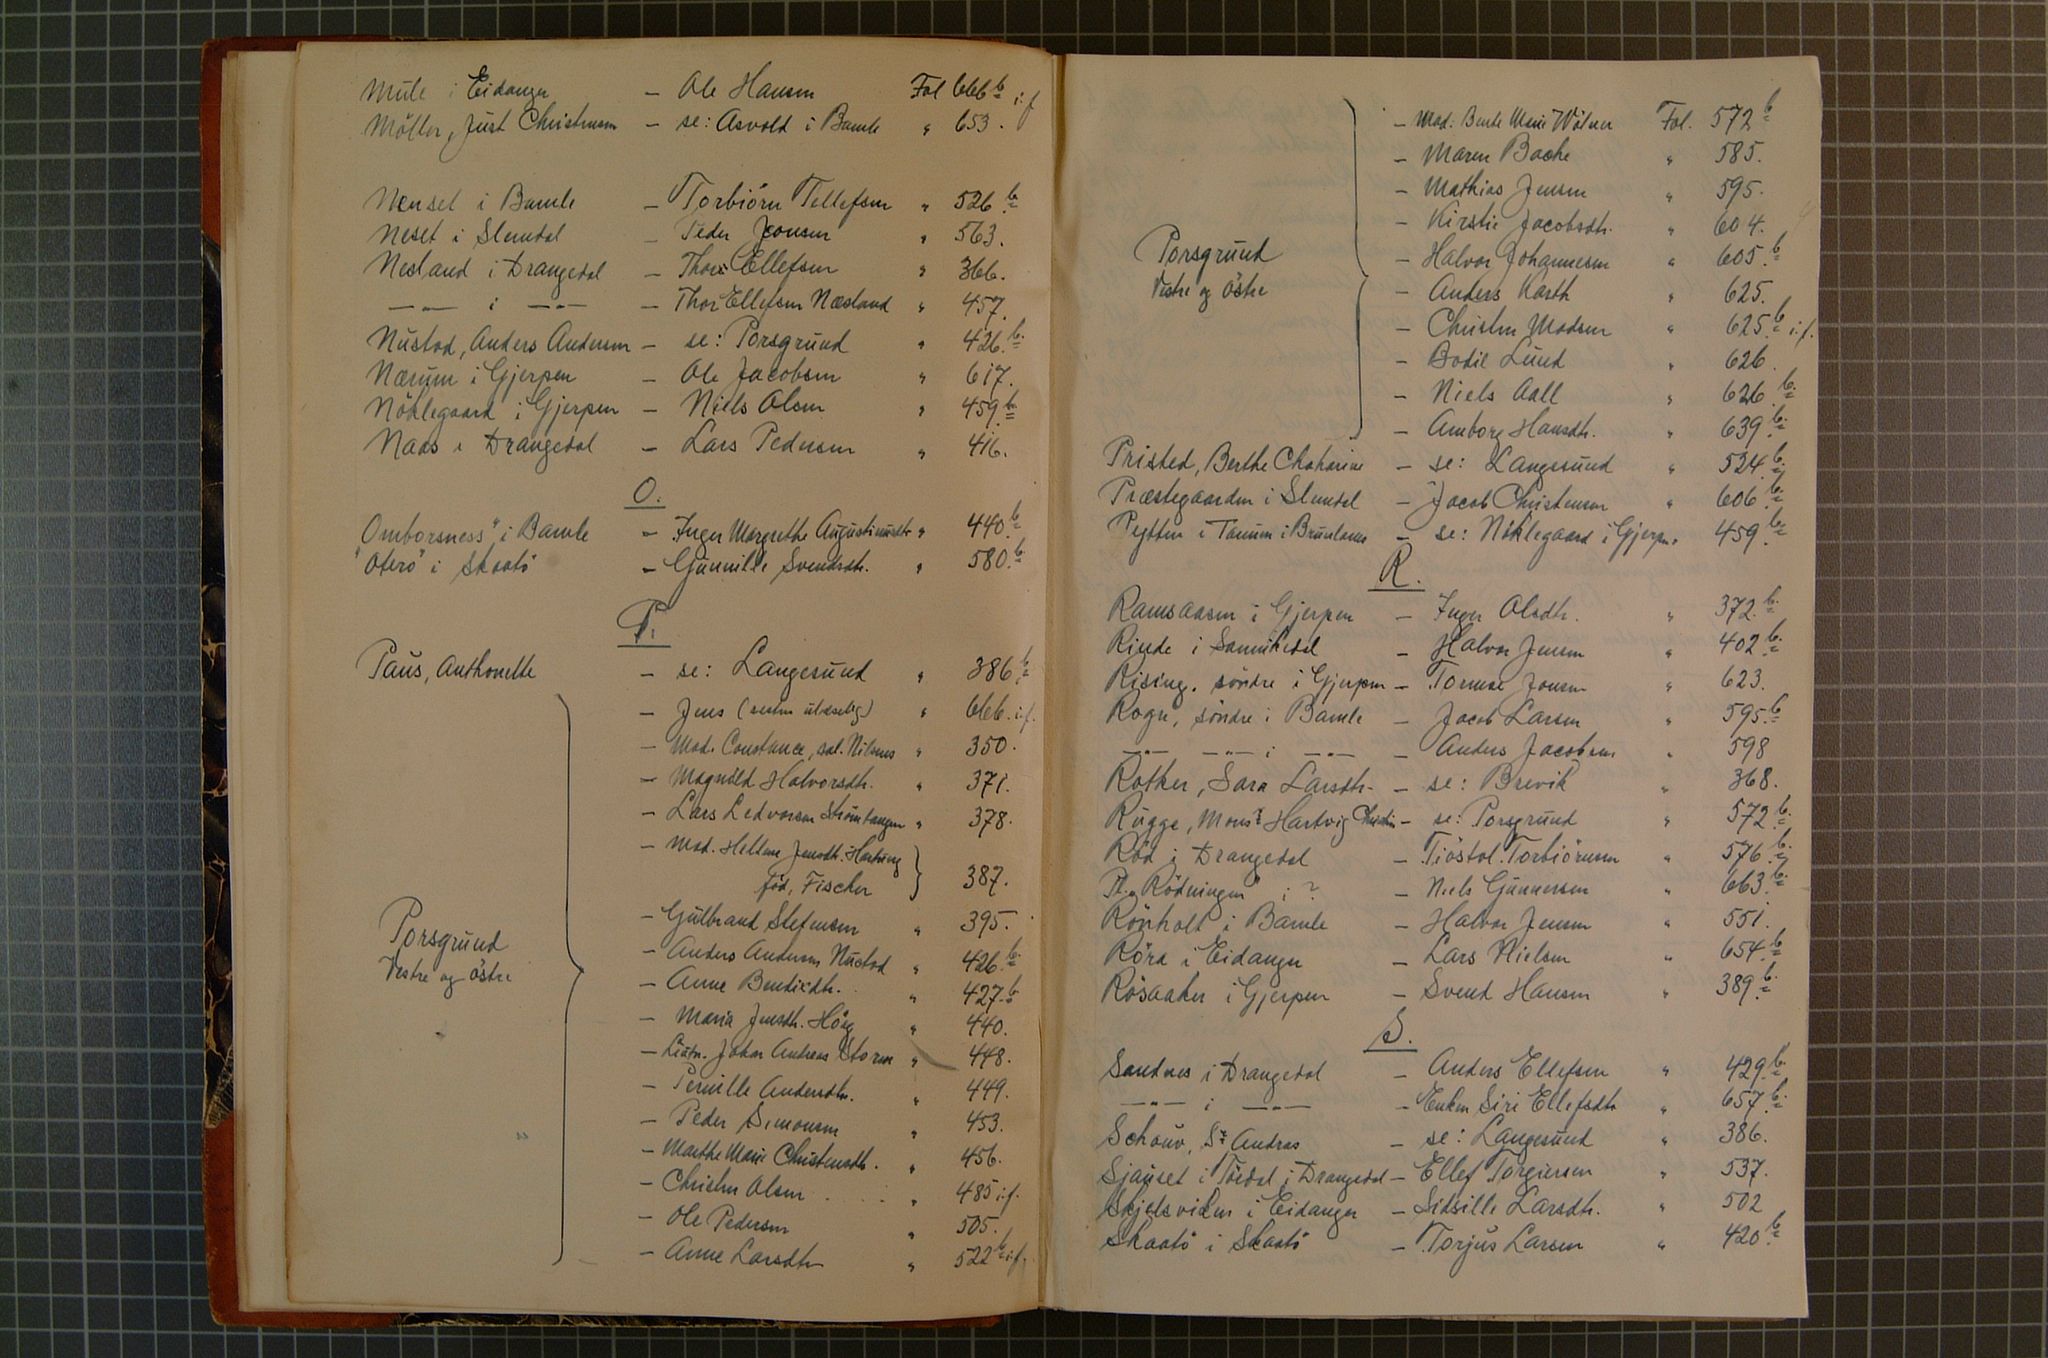 Mule i Eidanger — Ole Hansen Fol 666 b i.f
Möller, Just Christensen — se: Asvold i Bamle " 653.
Nenset i Bamle — Torbiörn Tellefsen " 526 b.
Neset i Slemdal — Peder Jonsen " 563.
Nesland i Drangedal — Thor Ellefsen " 366.
—"— i —"— — Thor Ellefsen Næsland " 457.
Nustad, Anders Andersen — se: Porsgrund " 426 b.
Nærum i Gjerpen — Ole Jacobsen " 617.
Nöklegaard i Gjerpen — Niels Olsen " 459 b.
Naas i Drangedal — Lars Pedersen " 416.
O.
"Omborsness" i Bamle — Inger Margrethe Augustinusdtr " 440 b.
"Oterö" i Skaatö — Gunnille Svendsdtr. " 580 b.
P.
Paus, Anthonette — se: Langesund " 386 b.
— Jens (resten ulæselig) " 666. i.f.
— Mad. Constance, sal. Nilsens " 350.
— Magnild Halvorsdtr. " 371.
— Lars Ledvorsen Strömtangen " 378.
— Mad. Hellene Jensdtr. Hartvig
föd, Fischer } 387.
— Gulbrand Stefensen " 395.
— Anders Andersen Nustad " 426 b.
Porsgrund
Vestre og östre
— Anne Bendixdtr. " 427. b
— Maria Jensdtr. Höeg " 440.
— Lieutn. Johan Andreas Storm " 448.
— Pernille Andersdtr. " 449.
— Peder Simonsen " 453.
— Marthe Marie Christensdtr. " 456.
— Christen Olsen " 485 i.f.
— Ole Pedersen " 505.
— Anne Larsdtr " 522 b i.f.
— Mad. Bente Marie Wölner Fol. 572 b
— Maren Bache " 585.
— Mathias Jensen " 595.
— Kirstie Jacobsdtr. " 604.
Porsgrund
Vestre og östre
— Halvor Johannesen " 605. b
— Anders Karth " 625.
— Christen Madsen " 625. b i.f.
— Bodil Lund " 626.
— Niels Aall " 626. b.
— Amborg Hansdtr. " 639. b.
Pristed, Berthe Chatarine — se: Langesund " 524. b.
Præstegaarden i Slemdal — Jacob Christensen " 606. b.
Pytten i Tanum i Brunlanes — se: Nöklegaard i Gjerpen " 459. b.
R.
Ramsaasen i Gjerpen — Inger Olsdtr. " 372. b.
Rinde i Sannikedal — Halvor Jensen " 402 b.
Rising. söndre i Gjerpen — Tormoe Jonsen " 623.
Rogn, söndre i Bamle — Jacob Larsen " 595. b
—"— —"— i —"— — Anders Jacobsen " 598
Rotker, Sara Larsdtr. — se: Brevik " 368.
Rugge, Monsr Hartvig Christin — se: Porsgrund " 572. b.
Röd i Drangedal — Tiöstol Torbiörnsen " 576. b.
Pl. "Rödningen" i ? — Niels Gunnersen " 663. b.
Rönholt i Bamle — Halvor Jensen " 551.
Röra i Eidanger — Lars Nielsen " 654. b
Rösaaker i Gjerpen — Svend Hansen " 389. b.
S.
Sandnes i Drangedal — Anders Ellefsen " 429. b.
—"— i —"— — Enken Siri Ellefsdtr " 657. b.
Schouv, Sr Andras — se: Langesund " 386.
Sjauset i Töedal i Drangedal — Ellef Torgiersen " 537.
Skjelsviken i Eidanger — Sidsille Larsdtr. " 502
Skaatö i Skaatö — Torjus Larsen " 420. b.